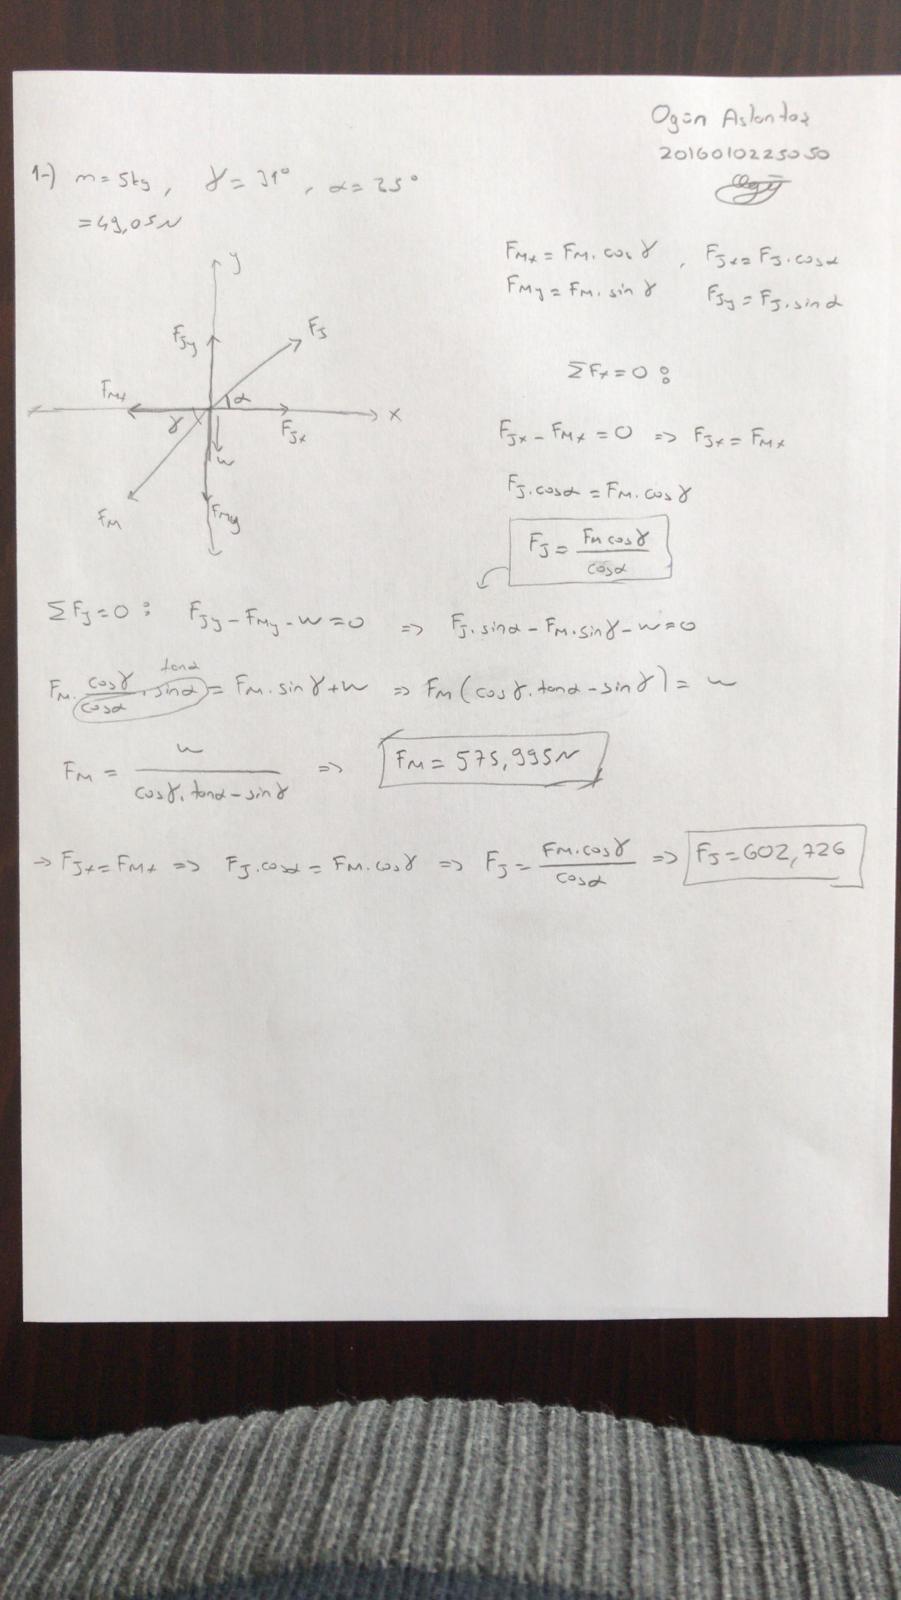 Ogün Aslantaş
2016010225050
1-) m=5kg, γ=31°, α=35°
=49,05N
FMx = FM.cosγ, FJx = FJ.cosα
FMy = FM.sinγ FJy = FJ.sinα
y
FJy FJ
FMx α x
γ FJx
w
FM FMy
ΣFx=0:
FJx - FMx = 0 => FJx = FMx
FJ.cosα = FM.cosγ
FJ = FM cosγ / cosα
ΣFy=0: FJy - FMy - w = 0 => FJ.sinα - FM.sinγ - w = 0
tanα
FM. cosγ / cosα . sinα = FM.sinγ + w => FM(cosγ.tanα - sinγ) = w
FM = w / cosγ.tanα - sinγ => FM = 575,995N
→ FJx = FMx => FJ.cosα = FM.cosγ => FJ = FM.cosγ / cosα => FJ = 602,726